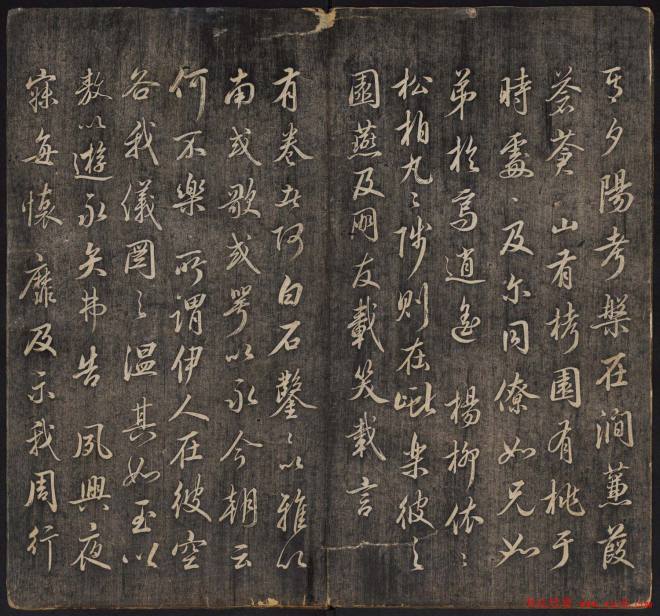 其夕陽考槃在澗蒹葭
蒼蒼 山有栲園有桃于
時處〻及尔同僚如兄如
弟於焉逍遙 楊柳依〻
松柏丸〻陟則在巘樂彼之
園燕及朋友載笑載言
有卷者阿白石鑿〻以雅以
南或歌或咢以永今朝云
何不樂 所謂伊人在彼空
谷我儀圖之温其如玉以
敖以遊永矢弗告 夙興夜
寐每懷靡及示我周行